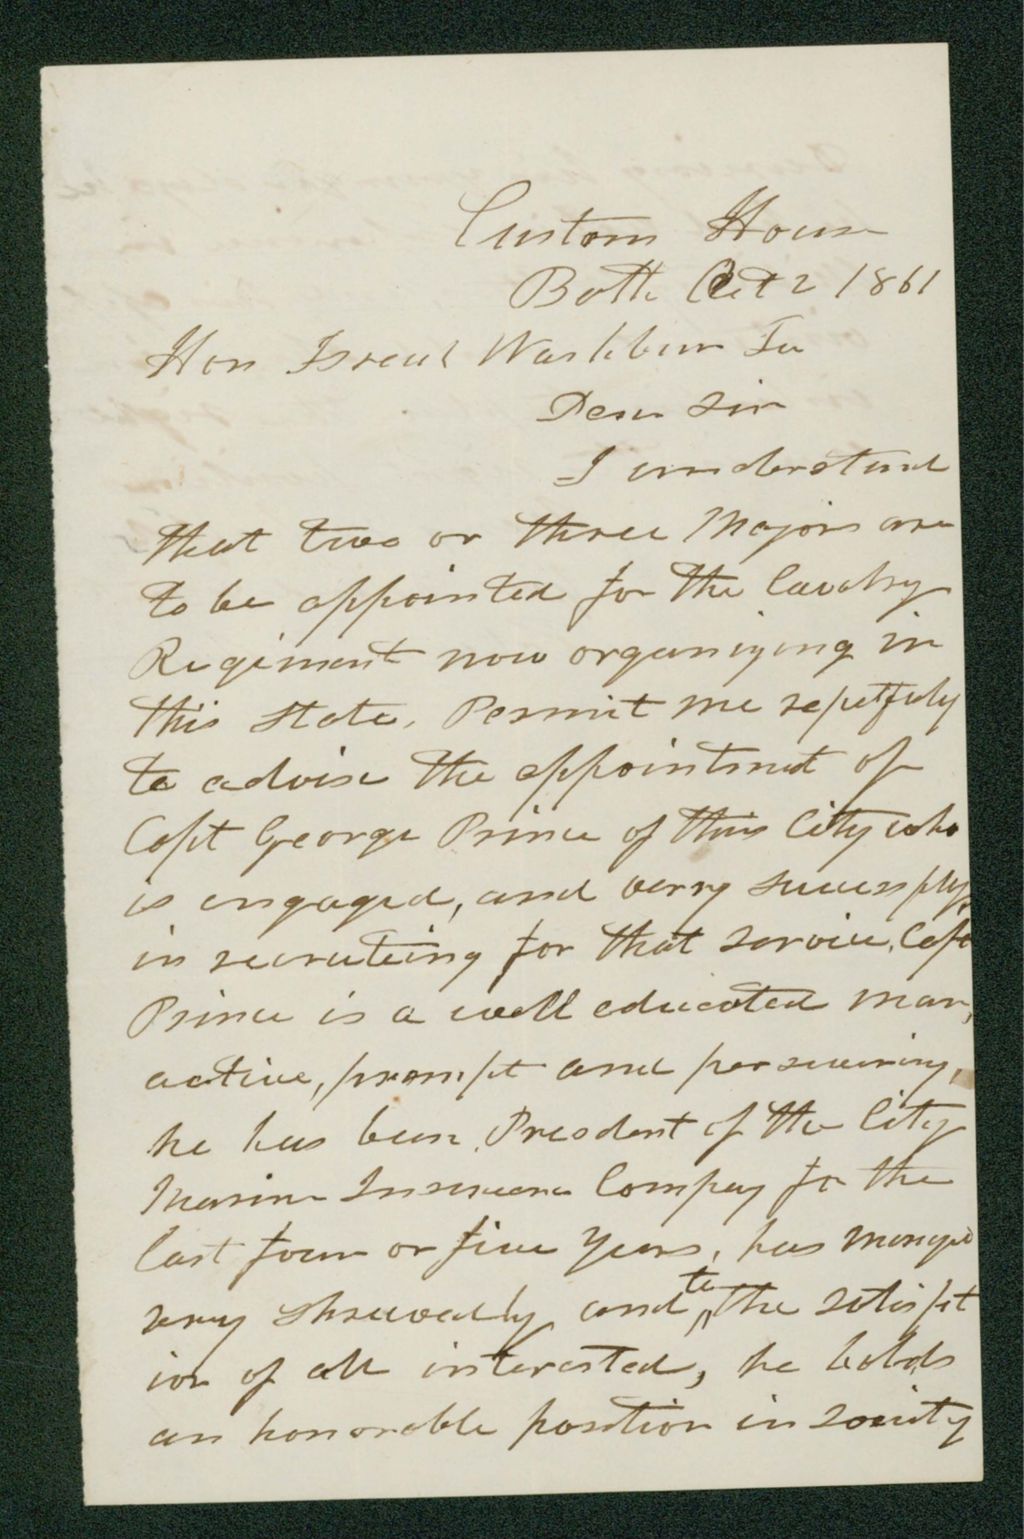 Custom House
Bath Oct 2 1861
Hon Isreal Washburn Jr
Dear Sir
I understand
that two or three Majors are
to be appointed for the Cavalry
Regiment now organizing in
this state. Permit me repetfuly
to advise the appointmet of
Capt George Prince of this City who
is engaged, and verry sucessfuly,
in recruteing for that service. Capt
Prince is a well educated man,
active, prompt and persevering,
he has been Presdent of the City
Marine Insurance Compay for the
last four or five years, has manged
very shrewedly and to the satisfct
ion of all interested, he holds
an honorable position in society